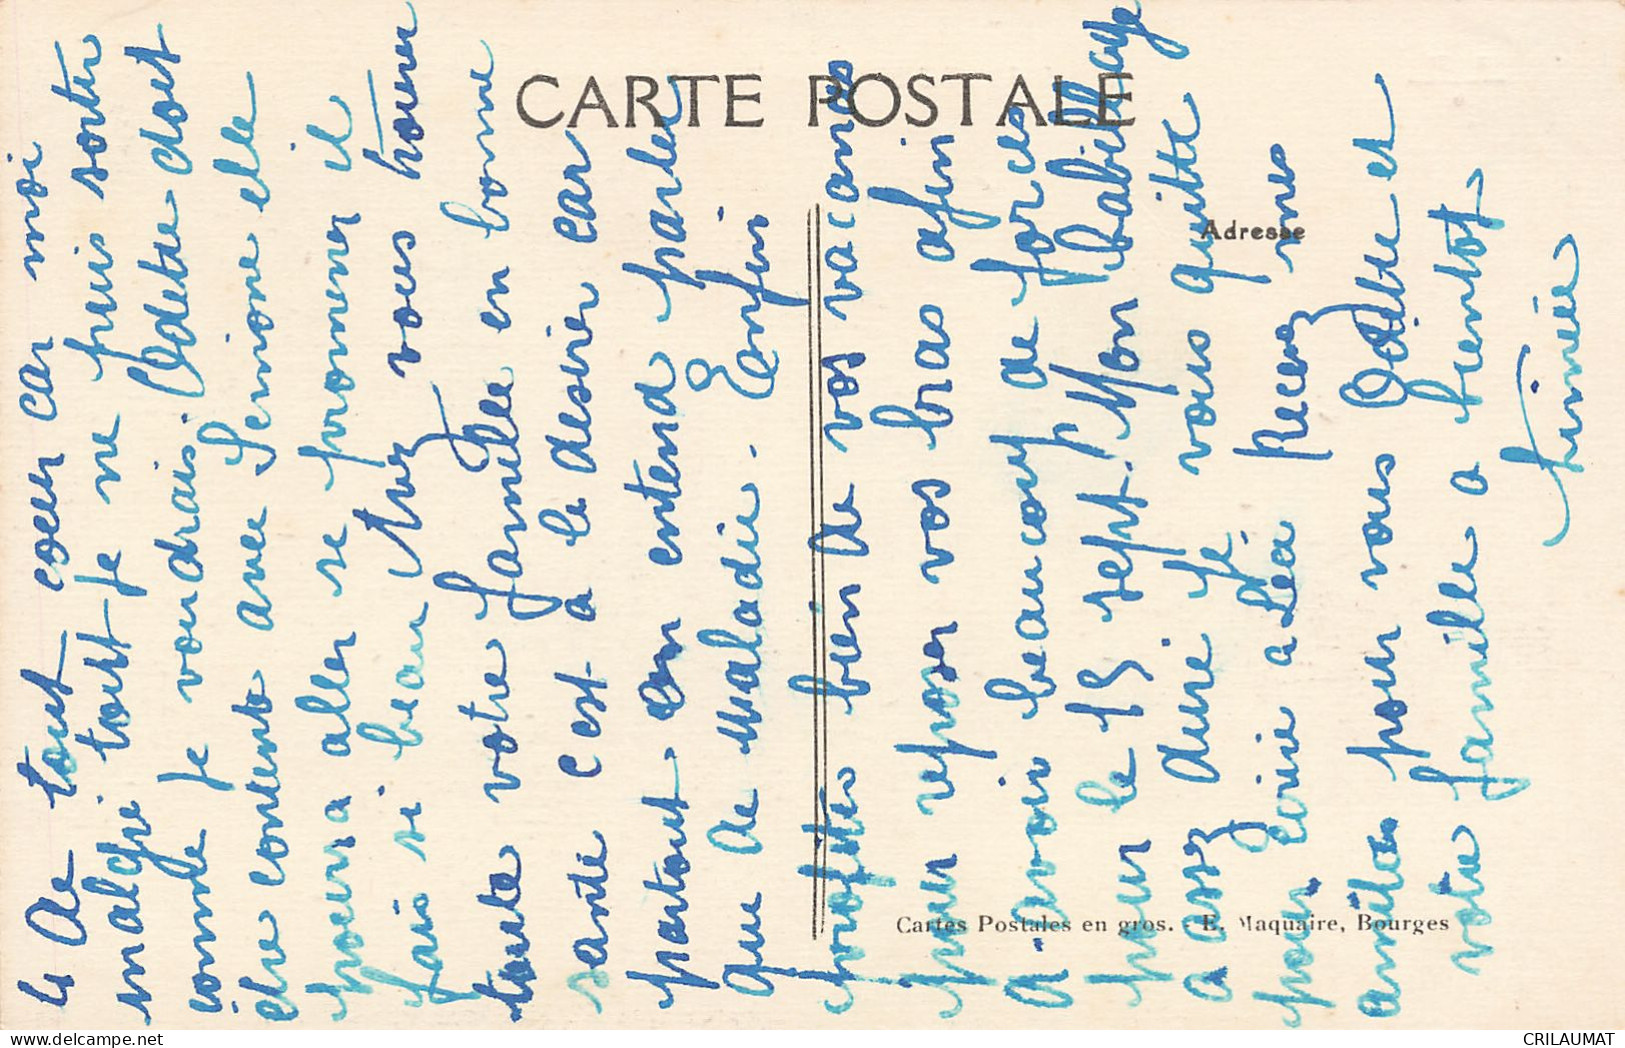 CARTE POSTALE
Adresse
Cartes Postales en gros. - E. Maquaire, Bourges
de tout coeur car moi
malgré tout je ne puis sortir
comme je voudrais. Odette doit
être contente avec Simone elle
pourra aller se promener il
fais si beau. Avez vous trouver
toute votre famille en bonne
santé c'est a le desirer car
partout on entend parler
que de maladie. Enfin
profitez bien de vos vacances
pour reposer vos bras afin
d'avoir beaucoup de forces
pour le 15 sept. Mon babillage
a assez duré je vous quitte
pour écrire a Léa Recevez mes
amitiés pour vous Odette et
votre famille a bientot
Aimée
CRILAUMAT